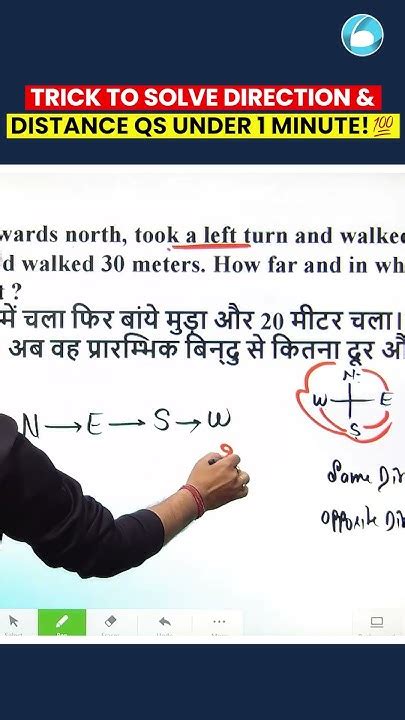 TRICK TO SOLVE DIRECTION &
DISTANCE QS UNDER 1 MINUTE!💯
wards north, took a left turn and walked
d walked 30 meters. How far and in wh
t ?
में चला फिर बांये मुड़ा और 20 मीटर चला।
अब वह प्रारम्भिक बिन्दु से कितना दूर औ
N
W E
S
N → E → S → W
Same Dir
Opposite Di
Select
Pen
Eraser
Undo
More